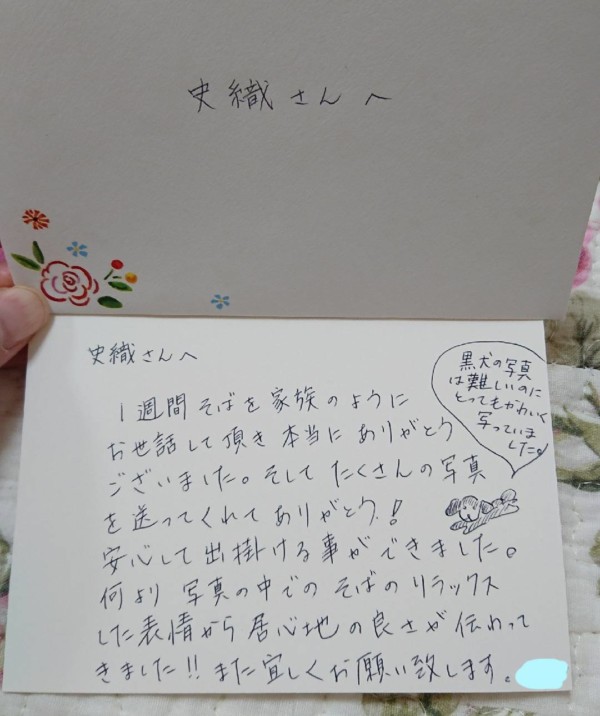 史織さんへ
史織さんへ
1週間そばを家族のように
お世話して頂き本当にありがとう
ございました。そしてたくさんの写真
を送ってくれてありがとう!
安心して出掛ける事ができました。
何より写真の中でのそばのリラックス
した表情から居心地の良さが伝わって
きました!!また宜しくお願い致します。
黒犬の写真
は難しいのに
とってもかわいく
写っていま
した。